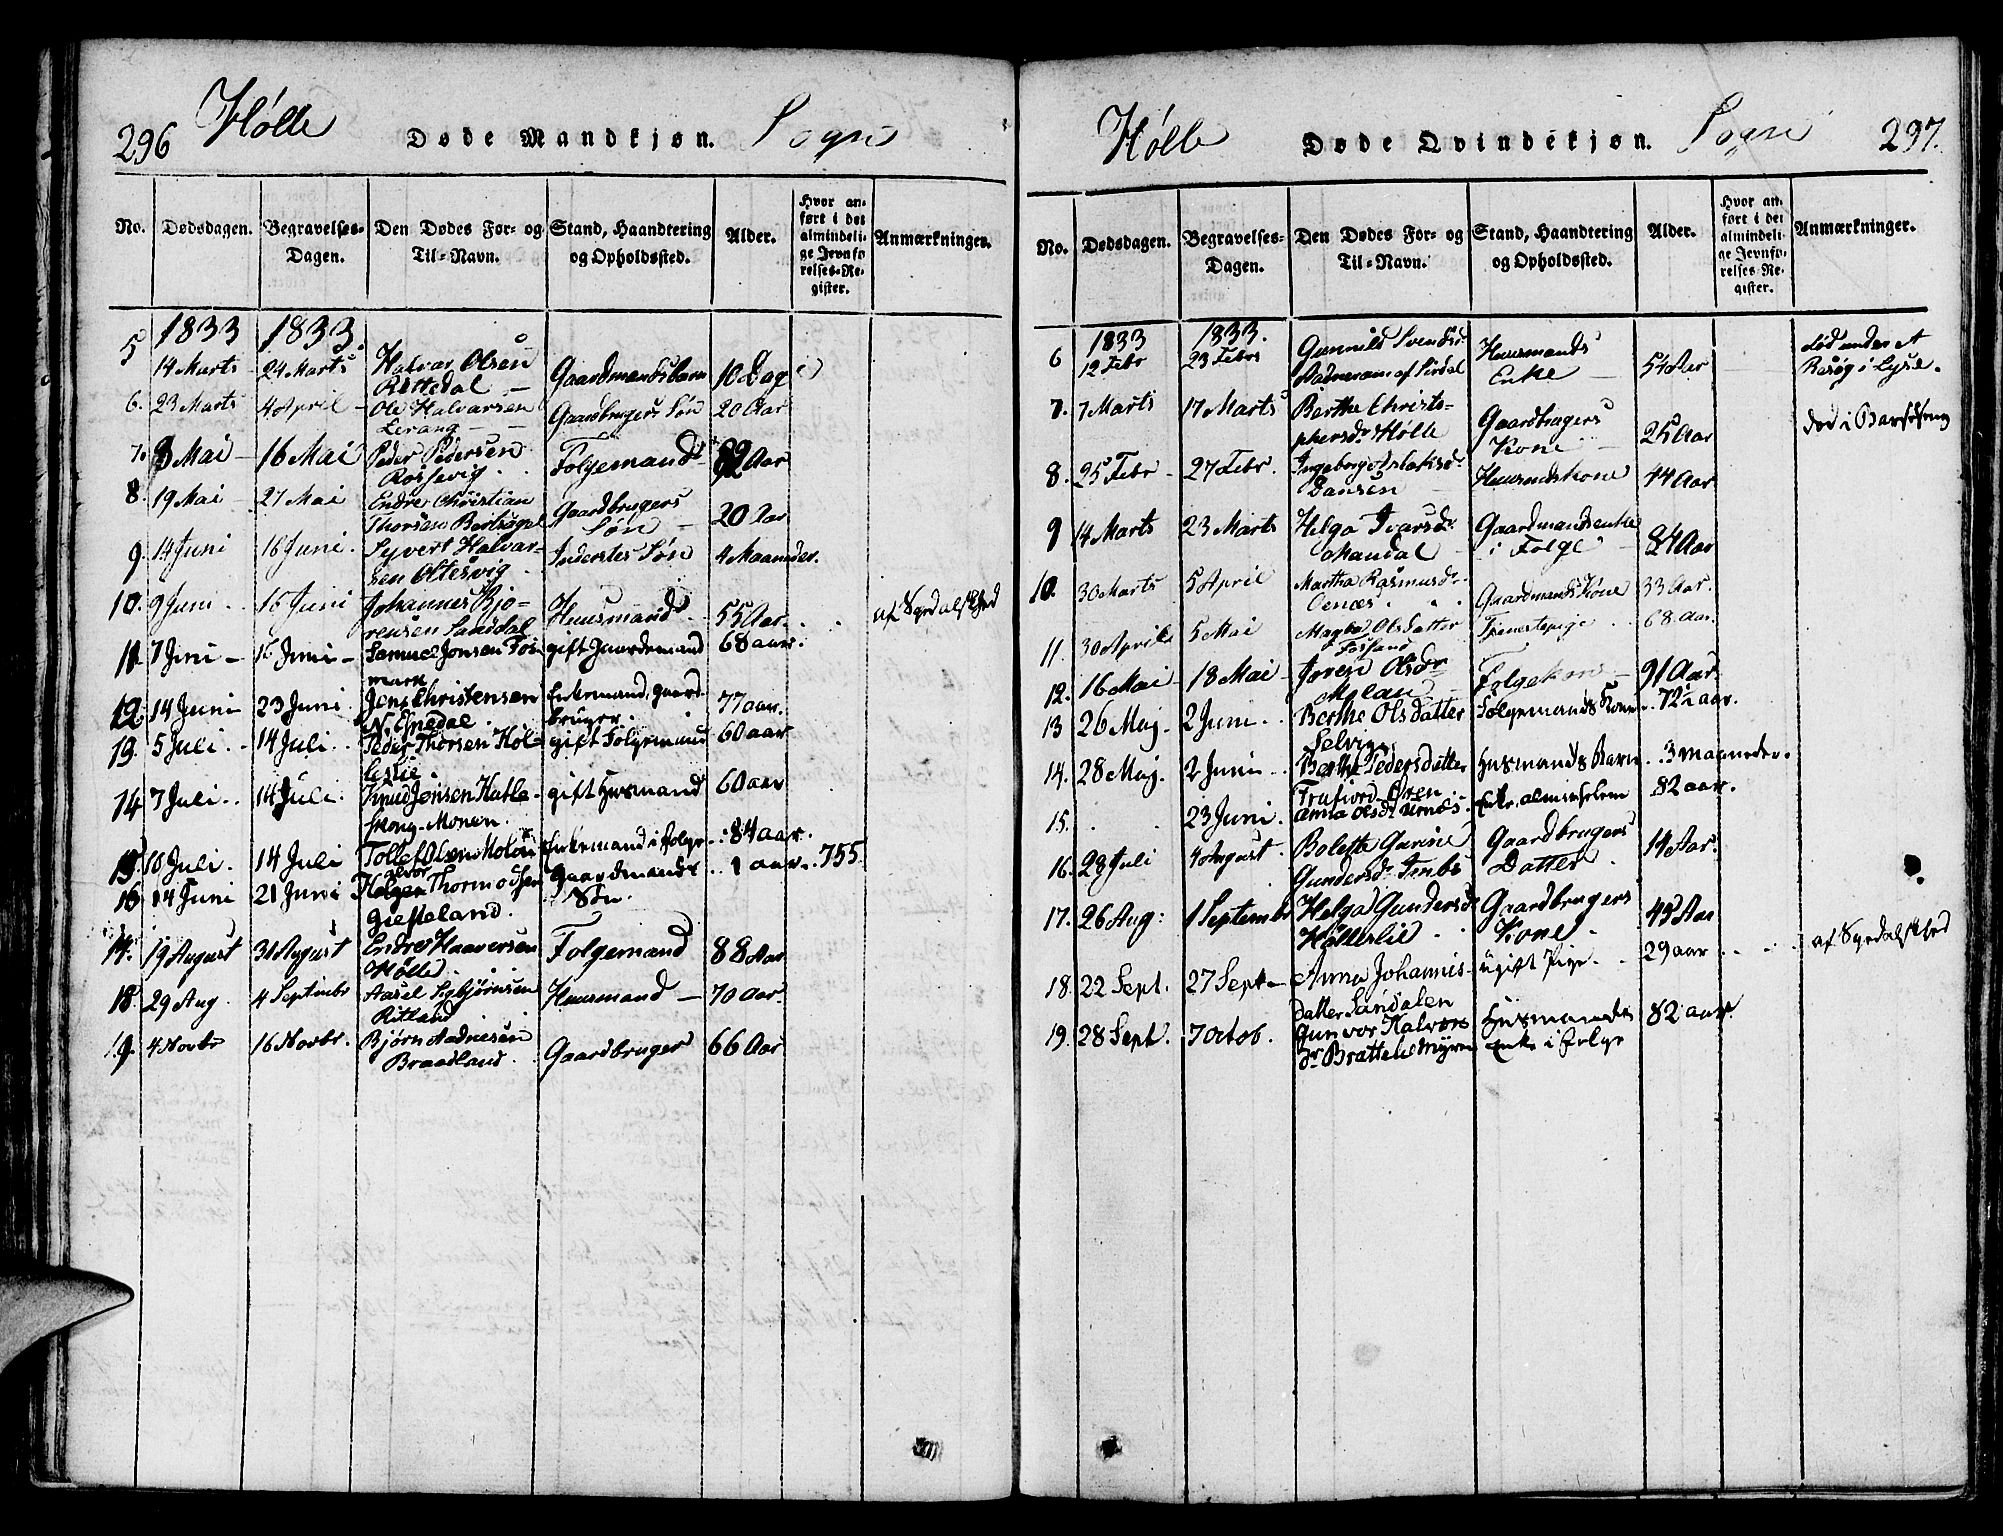 296 Hølle Døde Mandkjøn. Sogn
No. Dødsdagen. Begravelses-Dagen. Den Dødes For- og Til-Navn. Stand, Haandtering og Opholdssted. Alder. Hvor anført i det almindelige Jevnførelses-Register. Anmærkninger.
5 1833 1833.
14 Marts 24 Marts Halvar Olsen Gaardmandsbarn 10 Dag
Rettedal
6. 23 Marts 4 April Ole Halvarsen Gaardbrugers Søn 20 Aar
Lerang
7. 8 Mai 16 Mai Peder Pedersen Folgemand Aar
Rossevig
8. 19 Mai 27 Mai Endre Christian Gaardbrugers
Thorsen Søn 20 Aar
9. 14 Juni 16 Juni. Syvert Halvar- Inderstes Søn 4 Maaneder.
sen Oltesvig
10. 9 Juni 16 Juni Johannes Bjø- Huusmand 55 Aar. af Sygdalsthed
rensen Sandal
11. 7 Juni 16 Juni Samuel Jonsen Fos- gift Gaardemand 68 aar.
mark
12. 14 Juni 23 Juni Jens Christensen Enkemand, gaard- 77 aar.
N. Espedal. bruger.
13. 5 Juli 14 Juli Peder Thorsen Høl- gift Folgemand 60 aar
leslie.
14 7 Juli 14 Juli. Knud Jonsen Hatle- gift Husmand 60 aar
skong-Monen.
15. 10 Juli. 14 Juli Tollef Olsen Enkemand i Folge 84 aar.
16 14 Juni 21 Juni Thormodsen Gaardmands 1 aar 755.
Giesteland. Søn.
17. 19 August 31 August Endre Haaversen Folgemand 88 Aar
Hølle.
18. 29 Aug. 4 Septembr Aasel Sigbjørnsen Huusmand 70 Aar.
Ritland
19. 4 Novbr 16 Novbr. Bjørn Aadnesen Gaardbruger 66 Aar
Braadland
Hølle Døde Qvindekjøn. Sogn 297.
No. Dødsdagen. Begravelses-Dagen. Den Dødes For- og Til-Navn. Stand, Haandtering og Opholdssted. Alder. Hvor anført i det almindelige Jevnførelses-Register. Anmærkninger.
6 1833 1833. Gunnild Svendsd. Huusmands død under et
12 Febr 23 Febr Aadneram af Sirdal Enke 54 Aar Besøg i Lyse.
7. 7 Marts 17 Marts Berthe Christo- Gaardbrugers død i Barselseng
phersdr. Hølle Kone 25 Aar
8. 25 Febr 27 Febr. Ingeborg Aslaksdr. Huusmdskone 44 Aar
Dansen
9 14 Marts 23 Marts Helga Ivarsdr. Gaardmandsenke 84 Aar
Mandal i Folge
10. 30 Marts 5 April Martha Rasmusdr. Gaardmands Kone 33 Aar.
Oenæs.
11. 30 April 5 Mai Magla Olsdatter Tjenestepige 68 Aar.
Fossand
12. 16 Mai 18 Mai Joren Olsdr. Folgekone 91 Aar
Melan
13 26 Maj. 2 Juni Berthe Olsdatter Folgemands Kone 72½ aar.
Selvig.
14. 28 Maj. 2 Juni Berthe Pedersdatter Husmands Barn 3 maaneder.
Frafjord-Øren
15. 23 Juni Anna Olsdr Ernæs. Enke, almisselem 82 aar.
16. 28 Juli 4 August. Bolette Gurine Gaardbrugers 14 Aar.
Gundersdr. Imbs Datter.
17. 26 Aug: 1 Septembr Helga Gundersdr. Gaardbrugers 45 Aar
Hølleslie Kone.
18. 22 Sept. 27 Sept. Anna Johannis- ugift Pige 29 aar af Sygdalsthed
datter Sandalen
19. 28 Sept. 7 Octob. Gunvor Halvors Husmands 82 aar.
dr. Bratteliemyren Enke i Folge